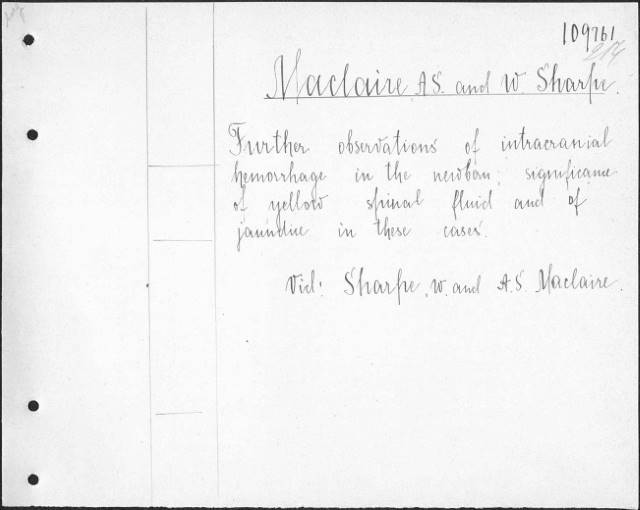 109761
214
Maclaire, A.S. and W. Sharpe.
Further observations of intracranial
hemorrhage in the newborn; significance
of yellow spinal fluid and of
jaundice in these cases.
Vid: Sharpe, W. and A.S. Maclaire.